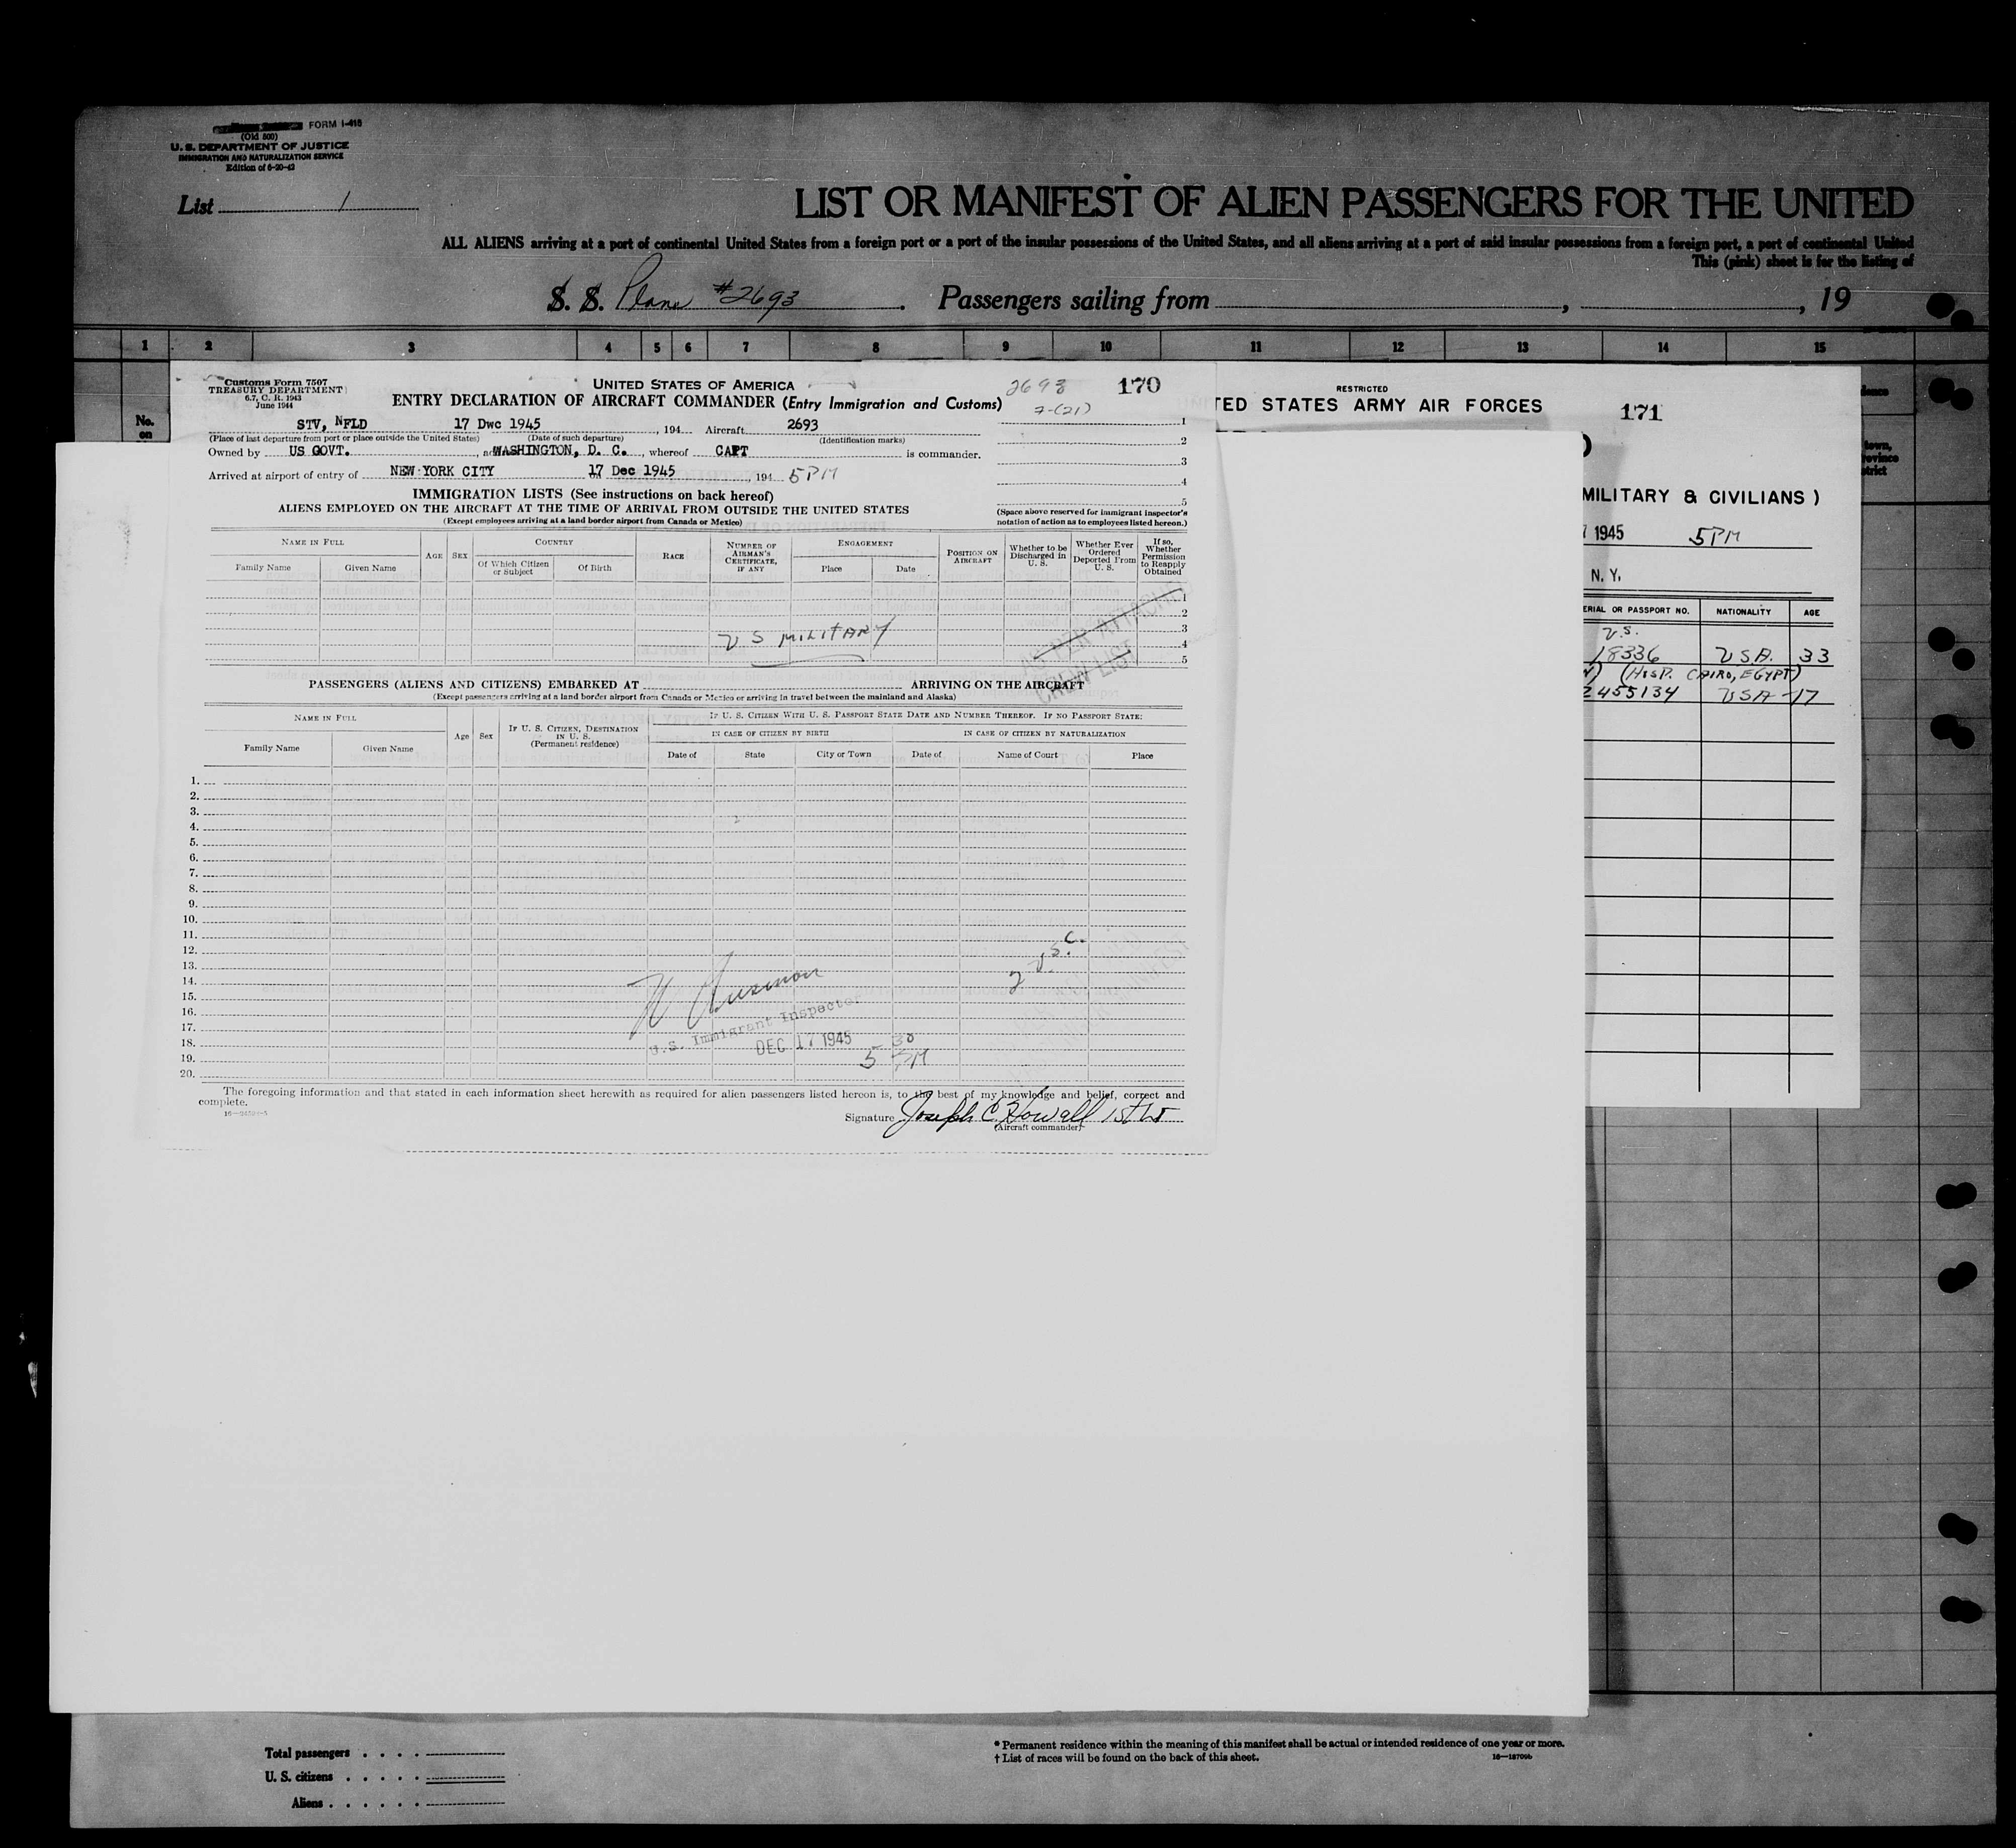 FORM I-415
(Old 500)
U. S. DEPARTMENT OF JUSTICE
IMMIGRATION AND NATURALIZATION SERVICE
Edition of 6-20-42
List 1
LIST OR MANIFEST OF ALIEN PASSENGERS FOR THE UNITED
ALL ALIENS arriving at a port of continental United States from a foreign port or a port of the insular possessions of the United States, and all aliens arriving at a port of said insular possessions from a foreign port, a port of continental United
This (pink) sheet is for the listing of
S. S. Plane #2693 . Passengers sailing from , , 19
1 2 3 4 5 6 7 8 9 10 11 12 13 14 15
No.
on
Customs Form 7507
TREASURY DEPARTMENT
6.7, C. R. 1943
June 1944
UNITED STATES OF AMERICA
2693 170
ENTRY DECLARATION OF AIRCRAFT COMMANDER (Entry Immigration and Customs)
7-(21)
STV, NFLD 17 Dwc 1945, 194 Aircraft 2693
(Place of last departure from port or place outside the United States) (Date of such departure) (Identification marks)
Owned by US GOVT. , a WASHINGTON, D. C. , whereof CAPT is commander.
Arrived at airport of entry of NEW YORK CITY on 17 Dec 1945, 194 5PM
1
2
3
4
5
IMMIGRATION LISTS (See instructions on back hereof)
ALIENS EMPLOYED ON THE AIRCRAFT AT THE TIME OF ARRIVAL FROM OUTSIDE THE UNITED STATES
(Except employees arriving at a land border airport from Canada or Mexico)
(Space above reserved for immigrant inspector's
notation of action as to employees listed hereon.)
NAME IN FULL
Family Name Given Name
AGE SEX
COUNTRY
Of Which Citizen or Subject Of Birth
RACE
NUMBER OF AIRMAN'S CERTIFICATE, IF ANY
ENGAGEMENT
Place Date
POSITION ON AIRCRAFT
Whether to be Discharged in U. S.
Whether Ever Ordered Deported From U. S.
If so, Whether Permission to Reapply Obtained
1
2
3
4
5
US MILITARY
AS PER ATTACHED
CREW LIST
PASSENGERS (ALIENS AND CITIZENS) EMBARKED AT ARRIVING ON THE AIRCRAFT
(Except passengers arriving at a land border airport from Canada or Mexico or arriving in travel between the mainland and Alaska)
NAME IN FULL
Family Name Given Name
Age Sex
IF U. S. CITIZEN, DESTINATION IN U. S.
(Permanent residence)
IF U. S. CITIZEN WITH U. S. PASSPORT STATE DATE AND NUMBER THEREOF. IF NO PASSPORT STATE:
IN CASE OF CITIZEN BY BIRTH IN CASE OF CITIZEN BY NATURALIZATION
Date of State City or Town Date of Name of Court Place
1.
2.
3.
4.
5.
6.
7.
8.
9.
10.
11.
12.
13.
14.
15.
16.
17.
18.
19.
20.
2 U.S.C.
U.S. Immigrant Inspector
DEC 17 1945
5 30 PM
The foregoing information and that stated in each information sheet herewith as required for alien passengers listed hereon is, to the best of my knowledge and belief, correct and
complete.
16—34594-5
Signature Joseph C. Howall 1st Lt
(Aircraft commander)
RESTRICTED
TED STATES ARMY AIR FORCES
171
MILITARY & CIVILIANS )
7 1945 5PM
N. Y.
ERIAL OR PASSPORT NO. NATIONALITY AGE
U.S.
18336 USA. 33
(HOSP. CAIRO, EGYPT)
2455134 USA 17
Total passengers . . . .
U. S. citizens . . . . .
Aliens . . . . . .
* Permanent residence within the meaning of this manifest shall be actual or intended residence of one year or more.
† List of races will be found on the back of this sheet.